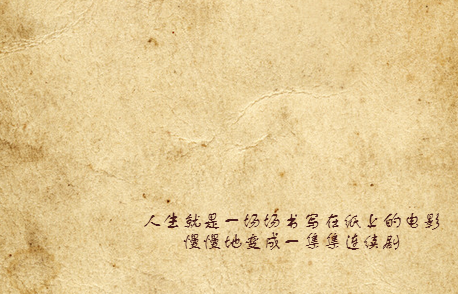 人生就是一场场书写在纸上的电影
慢慢地变成一集集连续剧